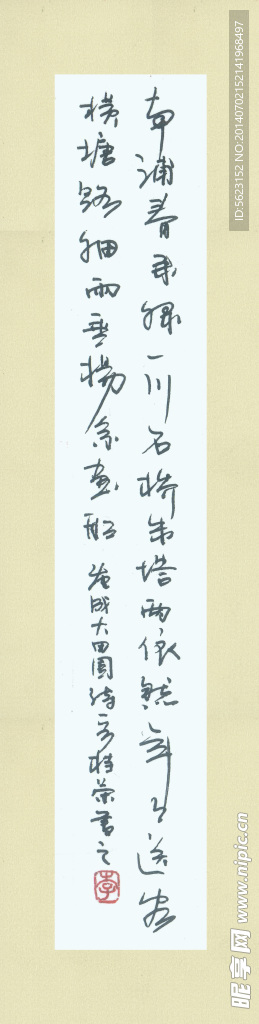 南浦春来绿一川石桥朱塔两依然年年送客
横塘路细雨垂杨系画船 范成大田園诗 荣書之
李
ID:5623152 NO:20140702152141968497
昵享网 www.nipic.cn